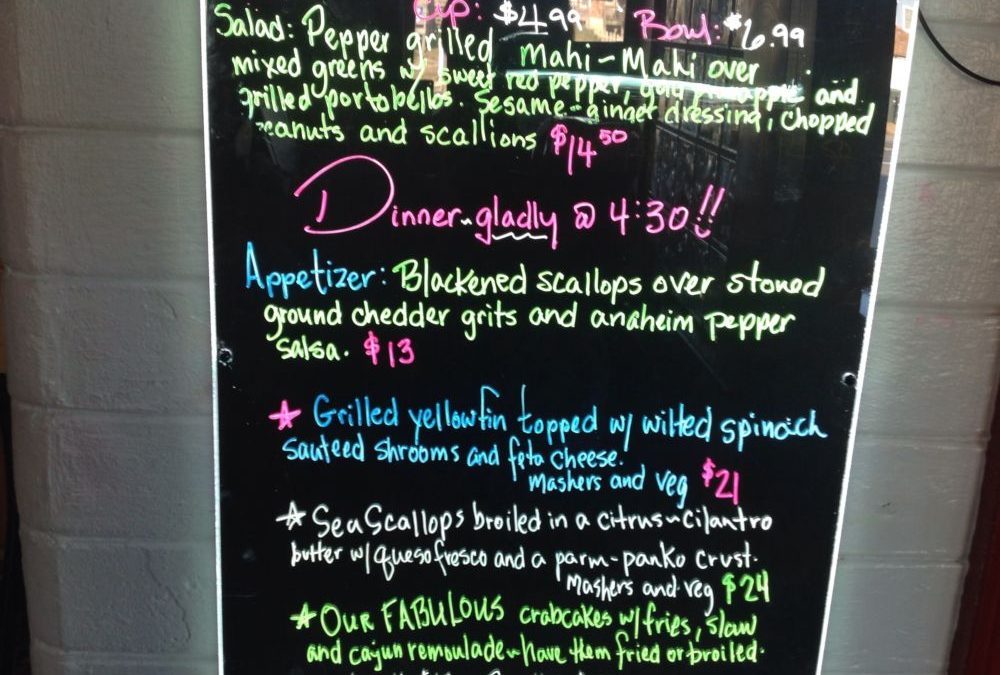 Cup: $4.99 Bowl: $6.99
Salad: Pepper grilled Mahi-Mahi over
mixed greens w/ sweet red pepper, gold pineapple and
grilled portobellos. Sesame-ginger dressing, chopped
peanuts and scallions $14.50
Dinner~gladly @ 4:30!!
Appetizer: Blackened scallops over stoned
ground chedder grits and anaheim pepper
salsa. $13
☆ Grilled yellowfin topped w/ wilted spinach
sauteed shrooms and feta cheese.
Mashers and veg $21
☆ Sea Scallops broiled in a citrus~cilantro
butter w/ queso fresco and a parm-panko crust.
Mashers and veg $24
☆ Our FABULOUS crabcakes w/ fries, slaw
and cajun remoulade~have them fried or broiled.